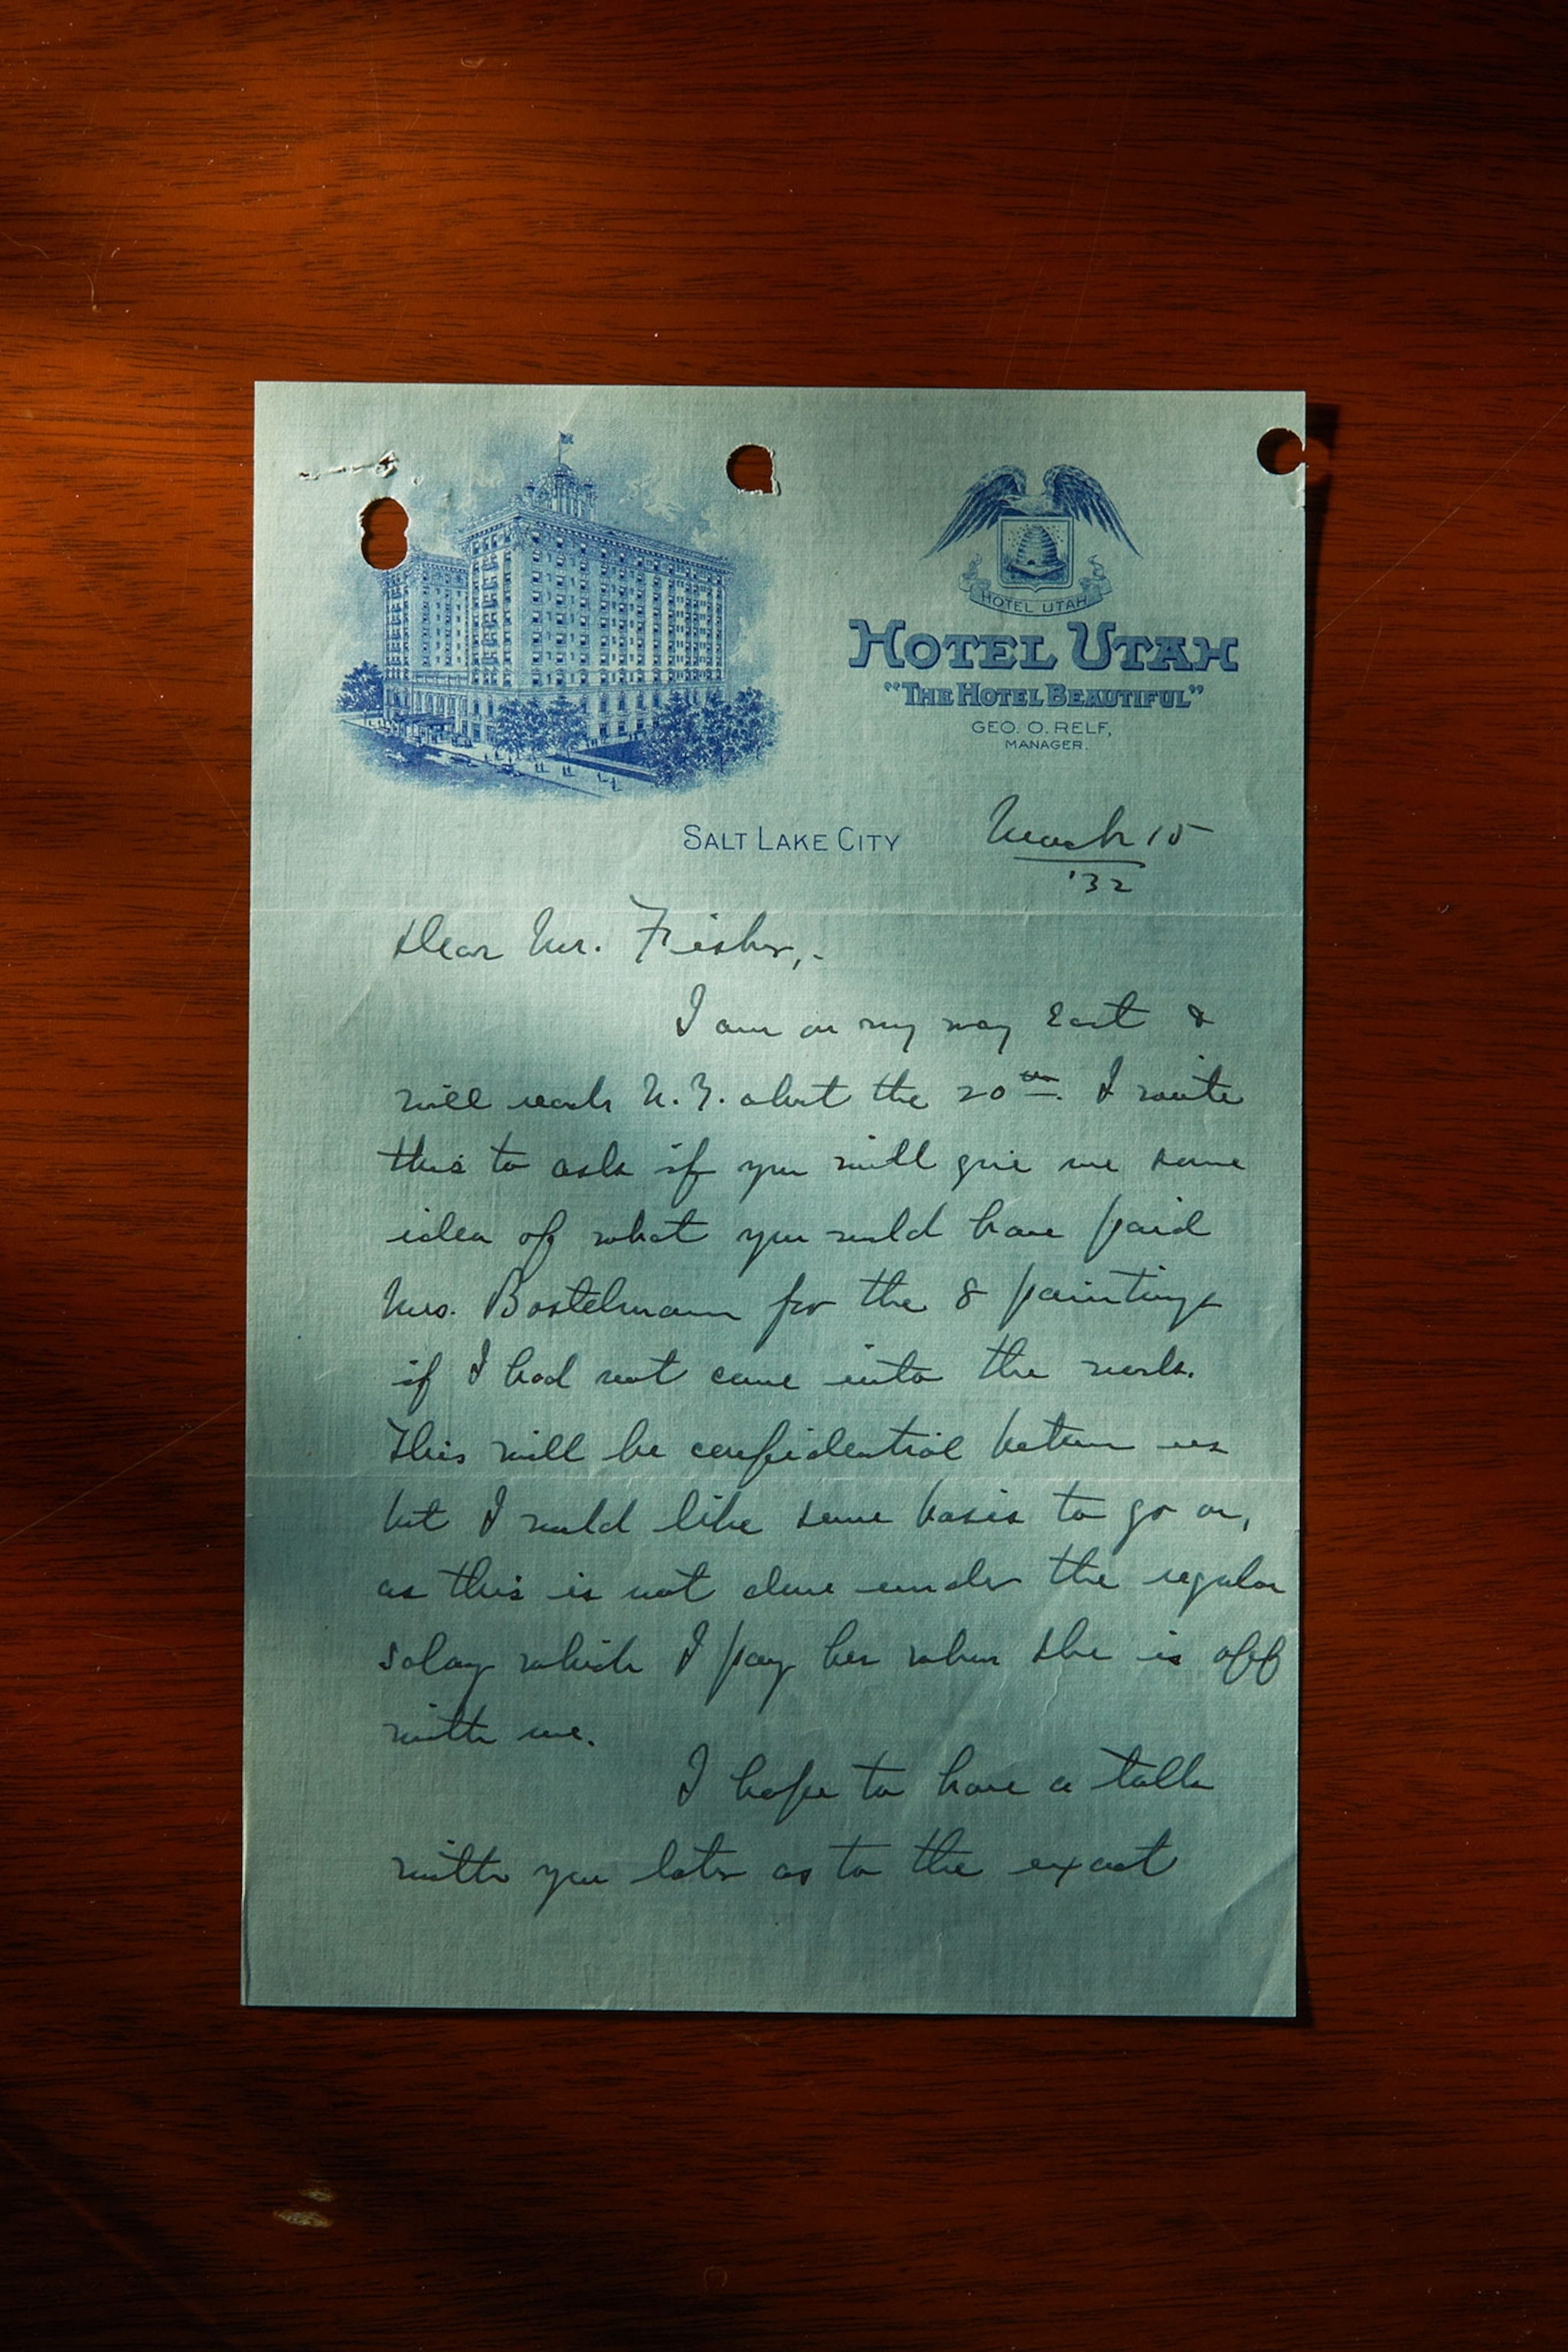 HOTEL UTAH
HOTEL UTAH
"THE HOTEL BEAUTIFUL"
GEO. O. RELF,
MANAGER.
SALT LAKE CITY
March 15
'32
Dear Mr. Fisher,.
I am on my way East &
will reach N.Y. about the 20th. I write
this to ask if you will give me some
idea of what you would have paid
Mrs. Bostelmann for the 8 paintings
if I had not come into the work.
This will be confidential between us
but I would like some basis to go on,
as this is not done under the regular
salary which I pay her when she is off
with me.
I hope to have a talk
with you later as to the exact